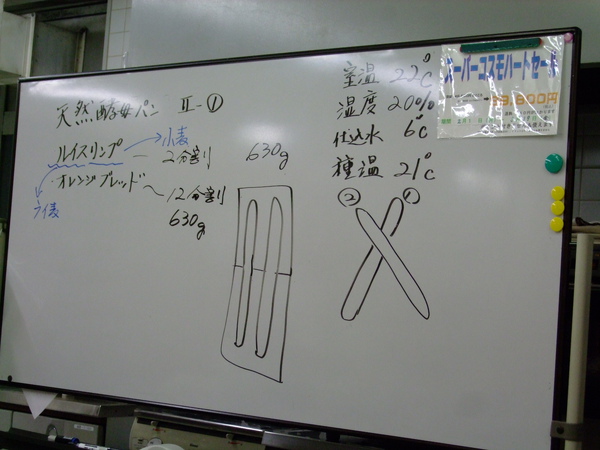 天然酵母パン Ⅱ-①
小麦
ルイスリンプ ー 2分割り 630g
・オレンジブレッド 〜 12分割り
630g
ライ麦
室温 22℃
湿度 20%
仕込水 6℃
種温 21℃
② ①
スーパーコスモハートセール